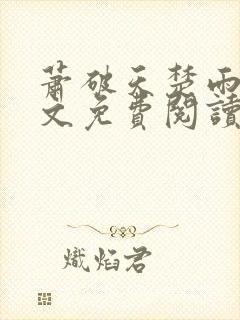 蕭破天楚雨
文免費閱讀
熾焰君